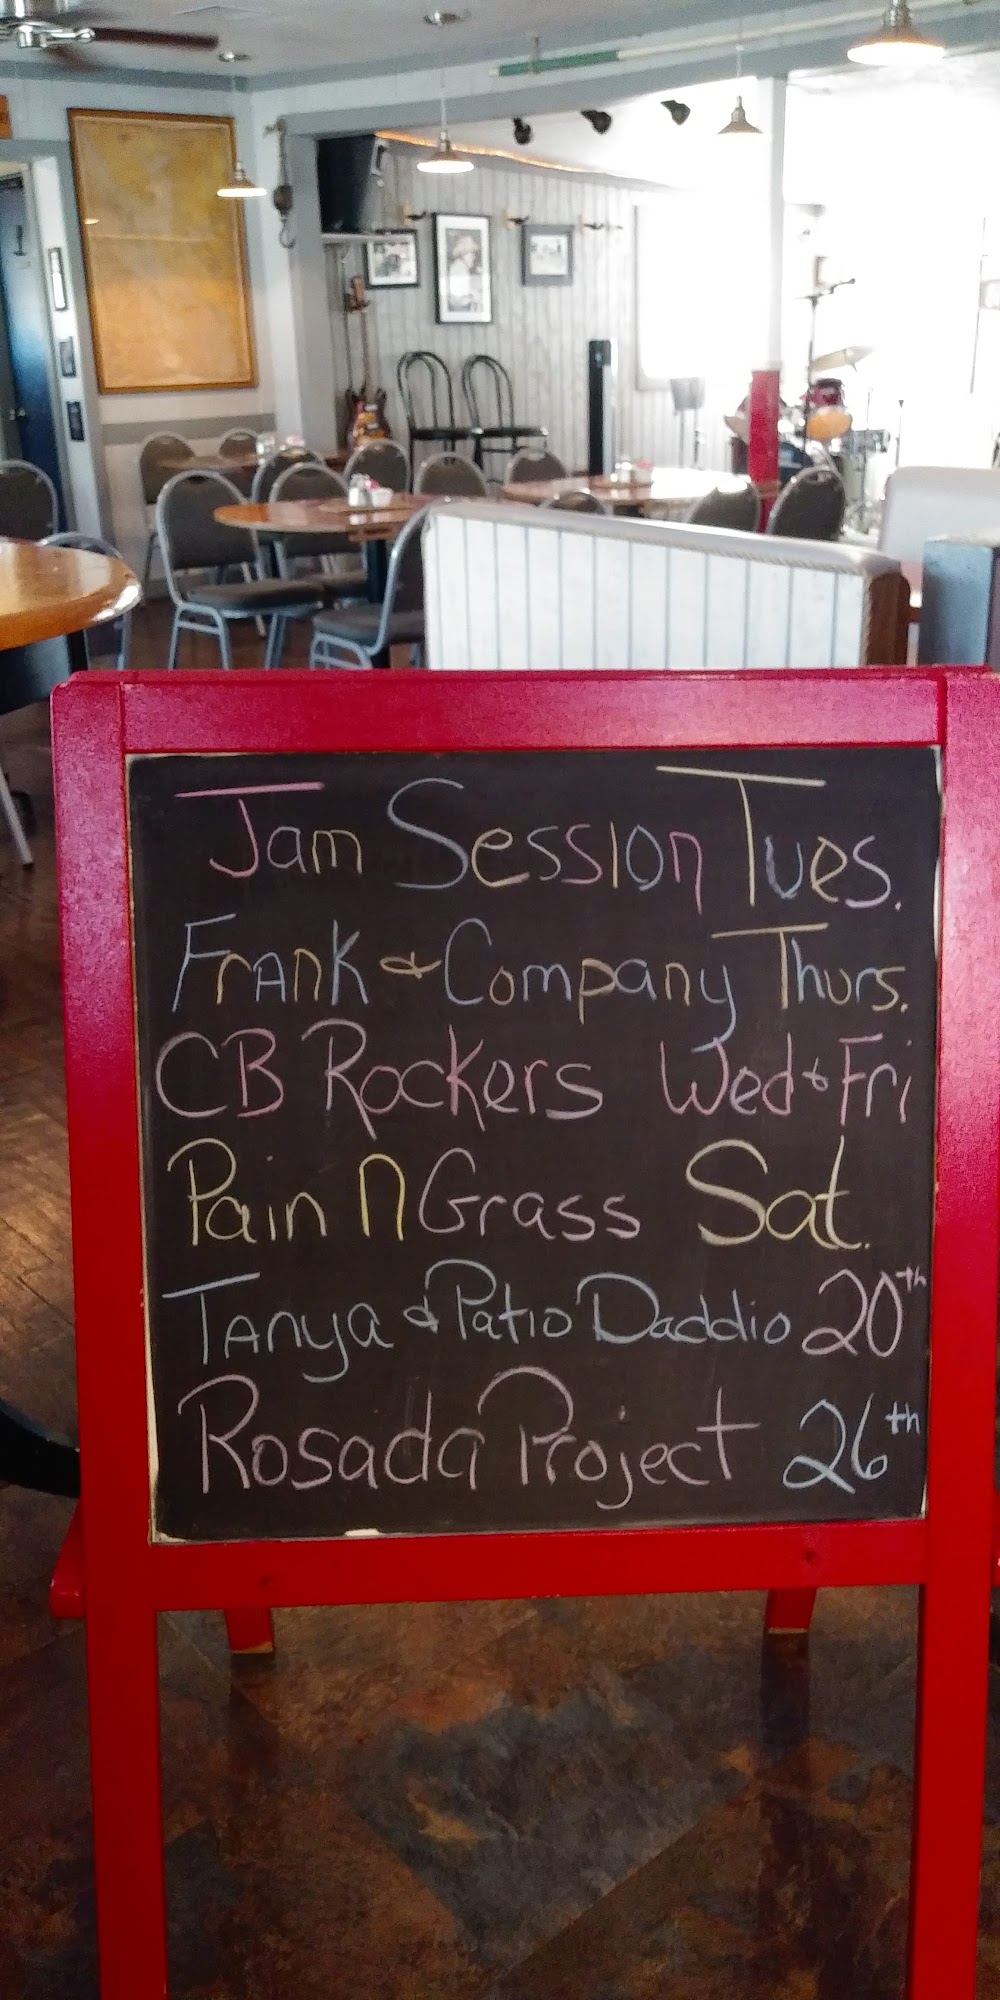 Jam Session Tues.
Frank & Company Thurs.
CB Rockers Wed & Fri
Pain N Grass Sat.
Tanya & Patio Daddio 20th
Rosada Project 26th